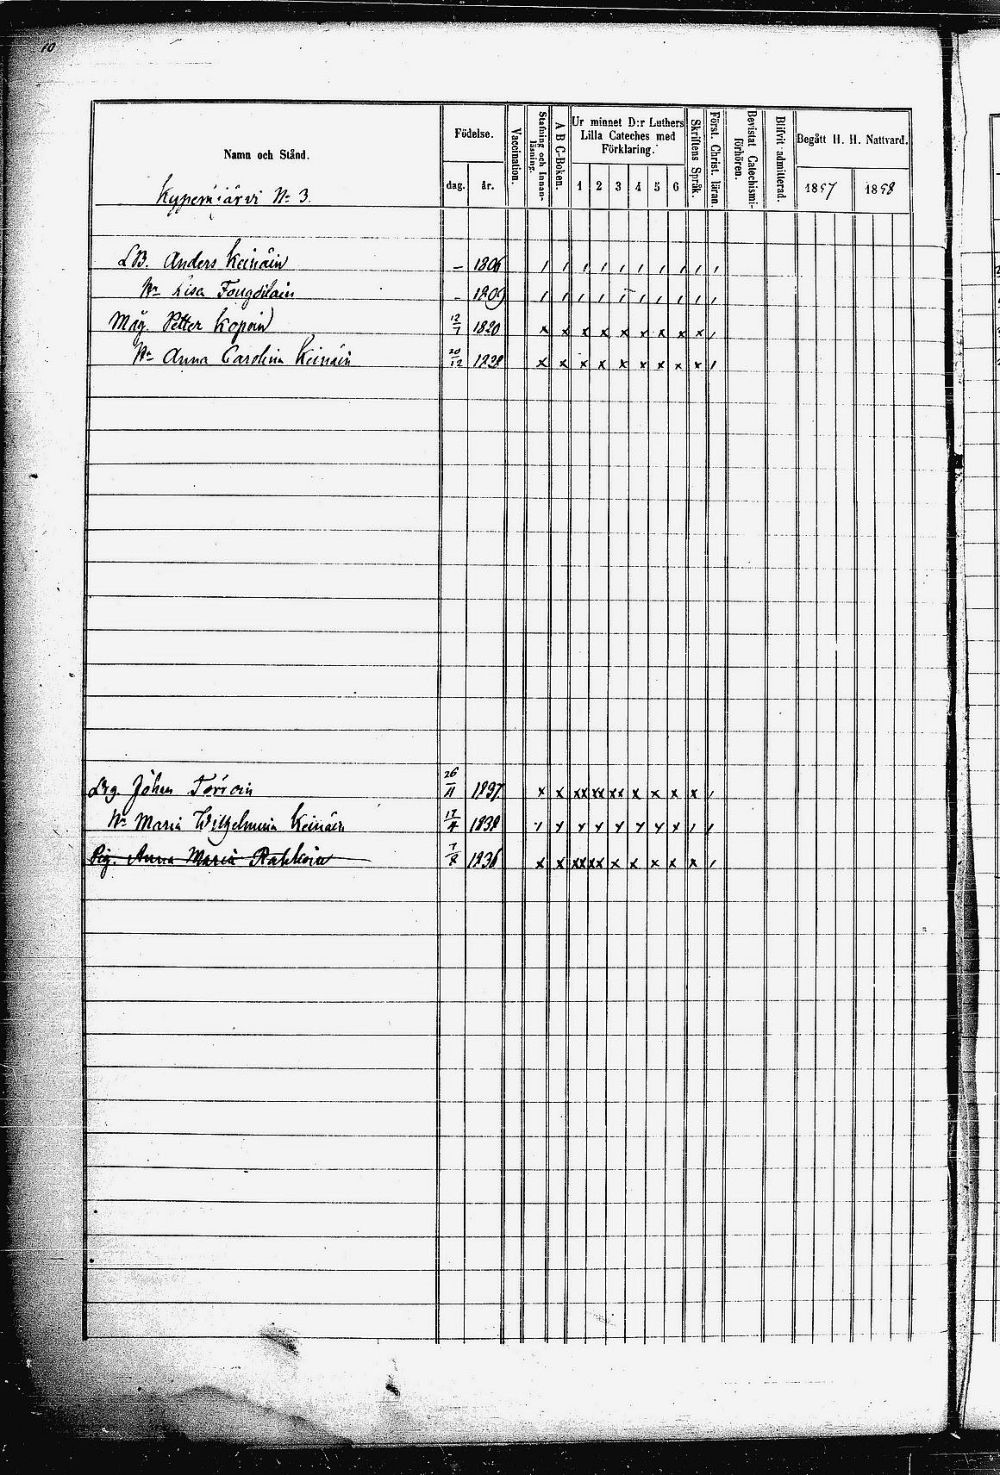 10
Namn och Stånd.
Födelse.
dag. år.
Vaccination.
Stafning och Innanläsning.
A B C-Boken.
Ur minnet D:r Luthers Lilla Cateches med Förklaring.
1 2 3 4 5 6
Skriftens Språk.
Först. Christ. läran.
Bevistat Catechismi-förhören.
Blifvit admitterad.
Begått H. H. Nattvard.
1857 1858
Kypermjärvi No 3.
LB. Anders Keinäin – 1806 / / / / / / / / / /
Lisa – / / / / / / / / / /
Måg. Petter Kopoin 12/7 1820 x x x x x x x x x /
Anna Carolina Keinäin 20/12 1828 x x x x x x x x x /
Johan 26/11 1837 x x xx xx xx x x x x /
Maria Wilhelmina Keinäin 17/4 1838
Pig. Anna Maria 1836 x x xx xx x x x x x /